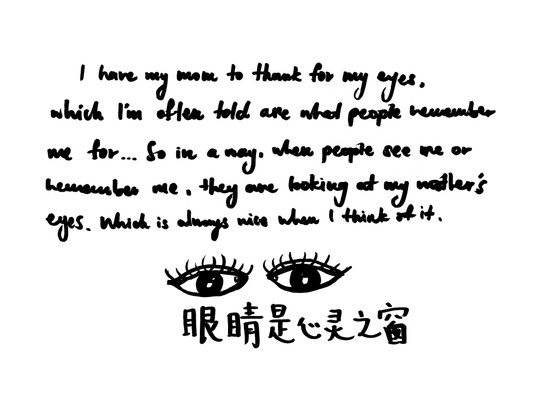 I have my mom to thank for my eyes,
which I'm often told are what people remember
me for... So in a way, when people see me or
remember me, they are looking at my mother's
eyes. Which is always nice when I think of it.
眼睛是心灵之窗